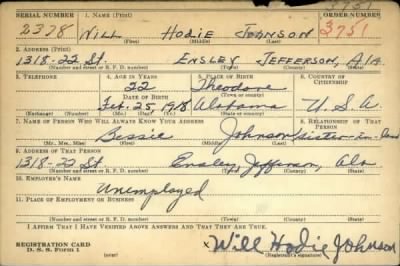 SERIAL NUMBER 1. NAME (Print) 3751 ORDER NUMBER
2378 WILL HODIE JOHNSON 3751
(First) (Middle) (Last)
2. ADDRESS (Print)
1318-22 St. ENSLEY JEFFERSON, Ala
(Number and street or R. F. D. number) (Town) (County) (State)
3. TELEPHONE 4. AGE IN YEARS 5. PLACE OF BIRTH 6. COUNTRY OF CITIZENSHIP
22 Theodore
DATE OF BIRTH (Town or county)
Feb. 25, 1918 Alabama U. S. A.
(Exchange) (Number) (Mo.) (Day) (Yr.) (State or country)
7. NAME OF PERSON WHO WILL ALWAYS KNOW YOUR ADDRESS 8. RELATIONSHIP OF THAT PERSON
Bessie Johnson sister-in-law
(Mr., Mrs., Miss) (First) (Middle) (Last)
9. ADDRESS OF THAT PERSON
1318-22 St. Ensley, Jefferson, Ala
(Number and street or R. F. D. number) (Town) (County) (State)
10. EMPLOYER'S NAME
Unemployed
11. PLACE OF EMPLOYMENT OR BUSINESS
(Number and street or R. F. D. number) (Town) (County) (State)
I AFFIRM THAT I HAVE VERIFIED ABOVE ANSWERS AND THAT THEY ARE TRUE.
REGISTRATION CARD
D. S. S. Form 1 x Will Hodie Johnson
(Registrant's signature)